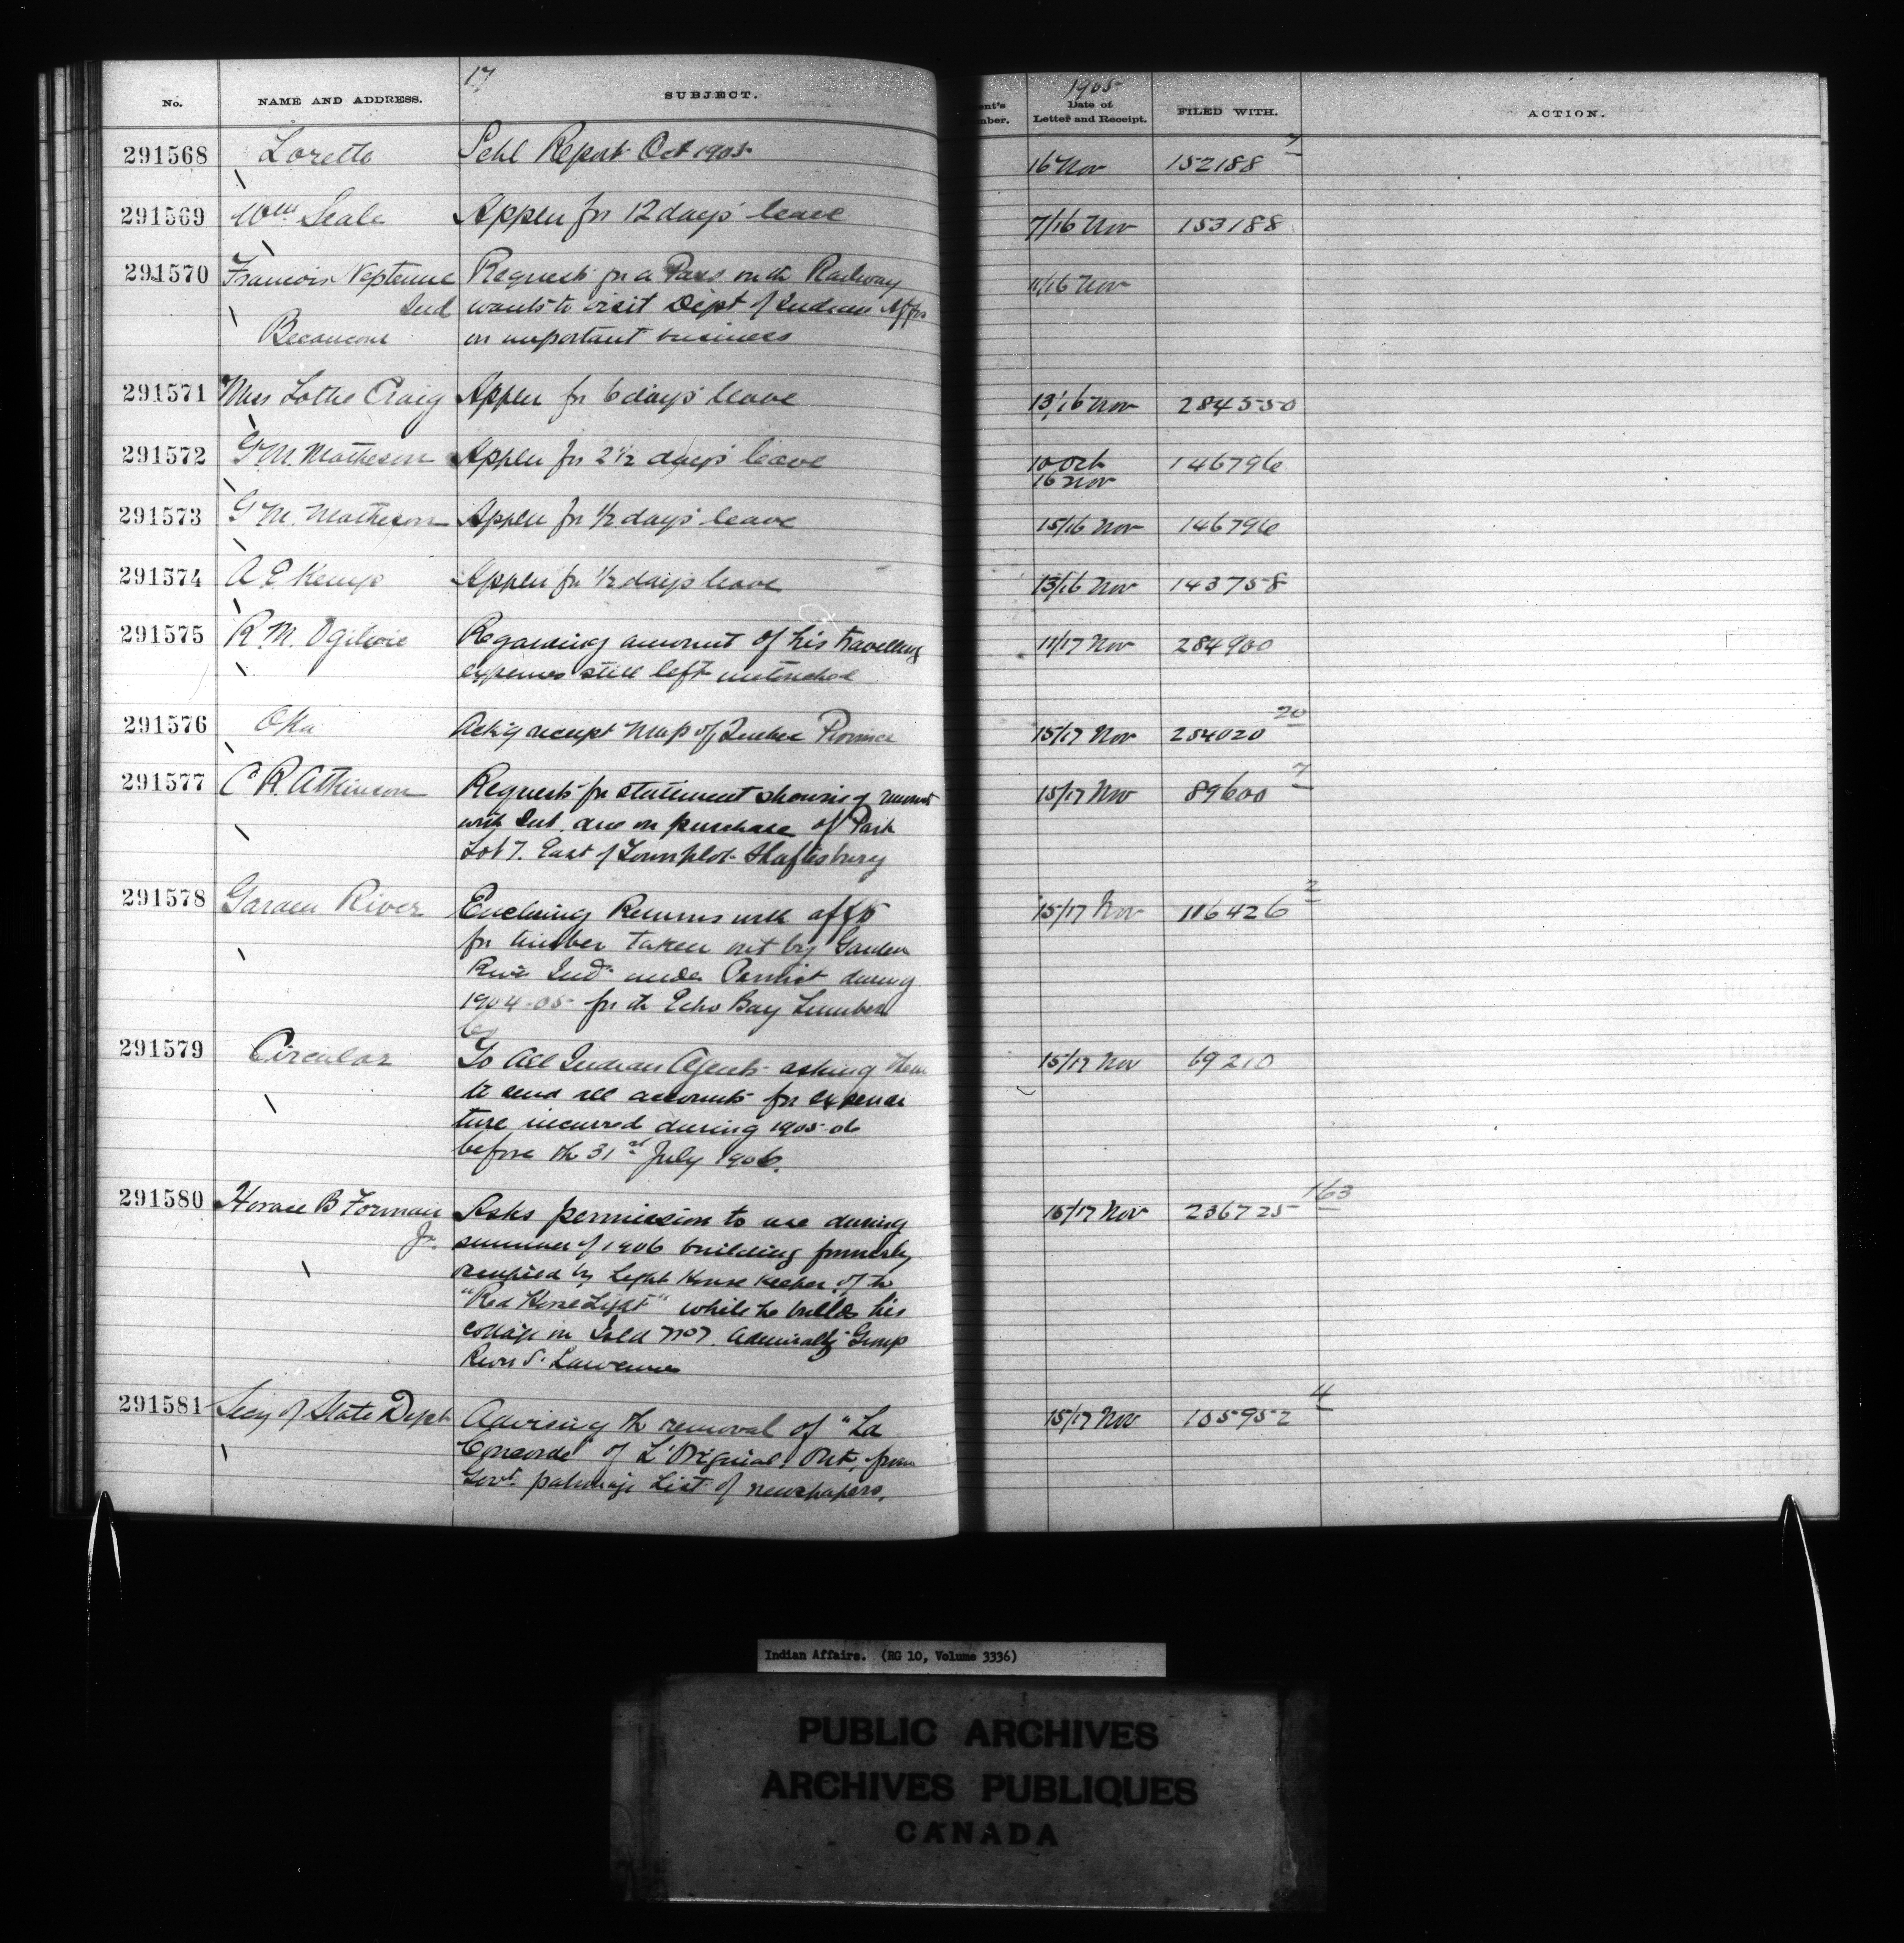 17
1905
No. NAME AND ADDRESS. SUBJECT. Date of Letter and Receipt. FILED WITH. ACTION.
291568 Lorette Schl Report Oct 1905 16 Nov 152188 7
291569 Wm Seale Applcn for 12 days' leave 7/16 Nov 153188
291570 Francois Neptune Request for a Pass on the Railway 11/16 Nov
Ind wants to visit Dept of Indian Affrs
Becancour on important business
291571 Miss Lottie Craig Applcn for 6 days' leave 13/16 Nov 284550
291572 G.M. Matheson Applcn for 2 1/2 days' leave 10 Oct 146796
16 Nov
291573 G M. Matheson Applcn for 1/2 days' leave 15/16 Nov 146796
291574 A E Kemp Applcn for 1/2 days leave 13/16 Nov 143758
291575 R.M. Ogilvie Regarding amount of his travelling 11/17 Nov 284900
expenses still left
291576 Oka Ackg receipt Map of Quebec Province 15/17 Nov 254020 20
291577 C R. Atkinson Request for statement showing amount 15/17 Nov 89600 7
with Int. due on purchase of Park
Lot 7. East of Townplot Shaftesbury
291578 Garden River Enclosing Returns with afft 15/17 Nov 116426 2
for timber taken out by Garden
River Inds under Permit during
1904-05 for the Echo Bay Lumber
Co
291579 Circular To All Indian Agents asking them 15/17 Nov 69210
to send all accounts for expendi
ture incurred during 1905-06
before the 31st July 1906.
291580 Horace B Forman Asks permission to use during 15/17 Nov 236725 163
Jr. summer of 1906 building formerly
occupied by Light House Keeper of the
"Red Horse Light" while he builds his
cottage on Isld No 7. Admiralty Group
River St. Lawrence
291581 Secy of State Dept Advising the removal of "La 15/17 Nov 105952 4
Concorde" of L'Orignal, Ont, from
Govt. patronage List of newspapers.
Indian Affairs. (RG 10, Volume 3336)
PUBLIC ARCHIVES
ARCHIVES PUBLIQUES
CANADA